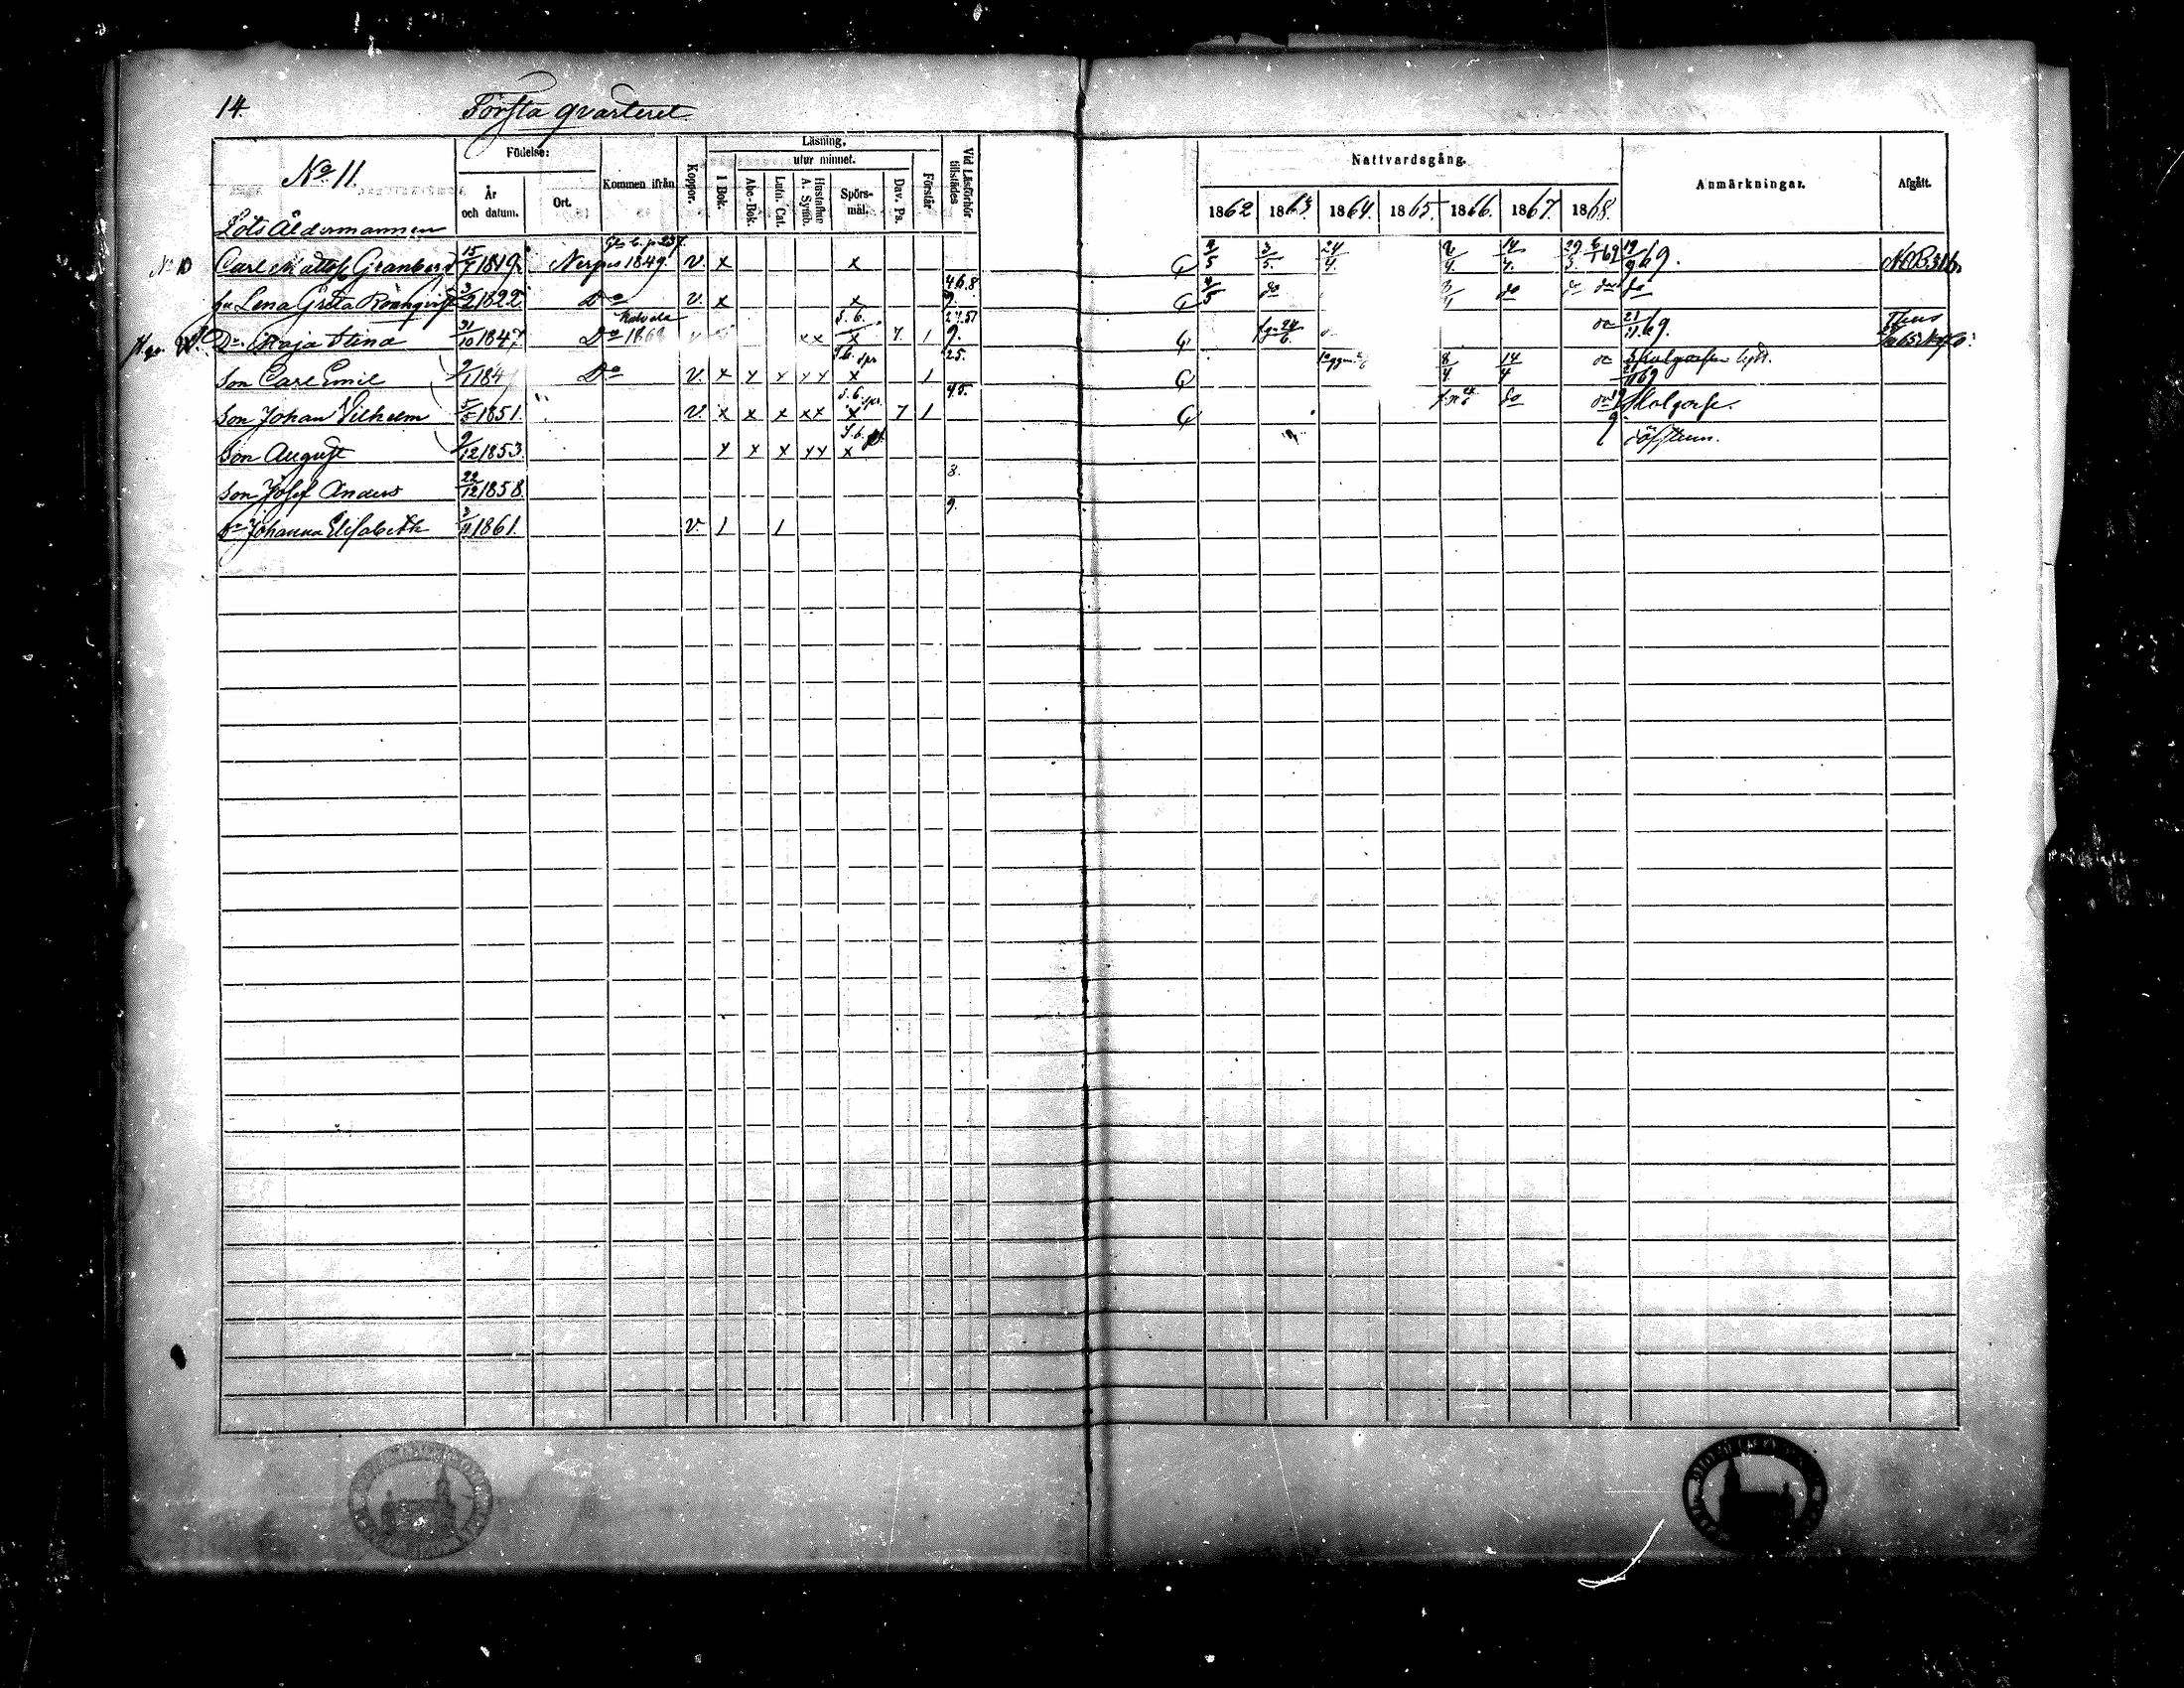 14.
Första qvarteret
No 11.
Födelse:
År och datum.
Ort.
Kommen ifrån
Koppor.
Läsning.
utur minnet.
I Bok.
Abc-Bok.
Luth. Cat.
Hustaflne A. Symb.
Spörs-mål.
Dav. Ps.
Förstår
Vid Läsförhör tillstädes
Nattvardsgång.
1862 1863. 1864. 1865. 1866. 1867. 1868.
Anmärkningar.
Afgått.
Lots Åldermannen
No 10 Carl Mattss Granberg 15/7 1819. Nerpes 1849. v. x x 2/5 3/5. 24/4. 2/4. 14/4. 29/3. 19/9 69.
hu Lena Greta 3/2 1822 Do v. x x 4.6.8 do do
Dr Maja Stina 31/10 1847 Do x x x 7. 1 9. 21/11 69.
Son Carl Emil 184 Do v. x x x x x x 1 25. 8/4. 14/4
Son Johan Vilhelm 5/5 1851. v. x x x x x x 7 1 45. do Skolgosse.
Son August 9/12 1853 x x x x x x
Son Josef Anders 22/12 1858. 8.
Dr Johanna Elisabeth 3/11 1861. v. 1 1 9.